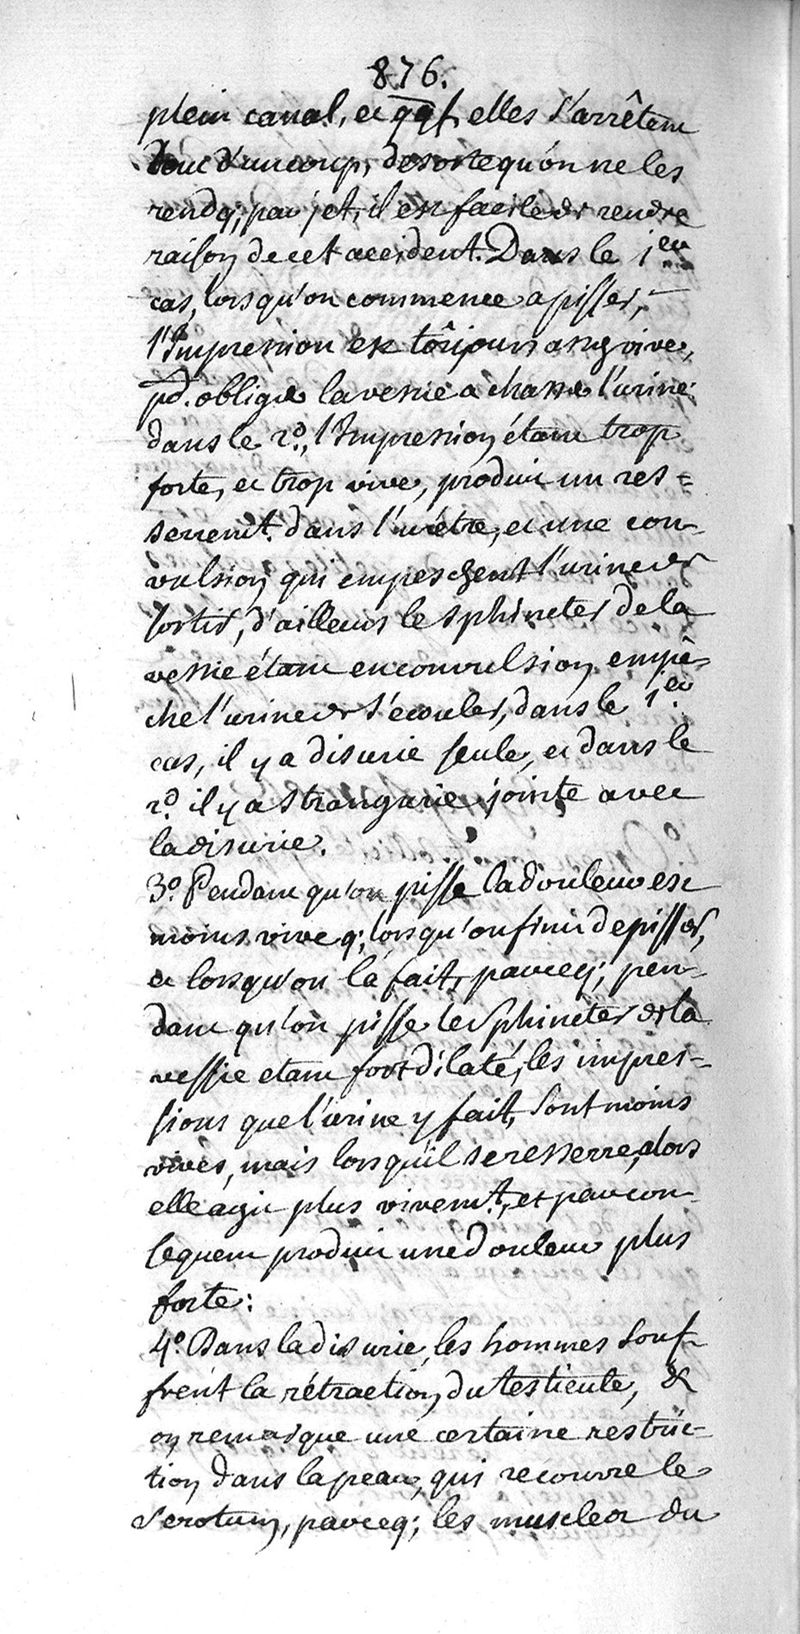 876.
plein canal, et qqf. elles s'arrêtent
tout d'un coup, desorte qu'on ne les
rend q; par jet, il est facile de rendre
raison de cet accident. Dans le 1er
cas, lorsqu'on commence a pisser,
l'Impression est toûjours assez vive,
pd. oblige la vessie a chasser l'urine:
dans le 2d., l'Impression étant trop
forte, et trop vive, produit un res=
serremt. dans l'urétre, et une con-
vulsion qui empeschent l'urine de
sortir, d'ailleurs le sphincter de la
vessie étant en convulsion empê-
che l'urine de s'écouler, dans le 1er
cas, il y a disurie seule, et dans le
2d. il y a strangurie jointe avec
la disurie.
3°. Pendant qu'on pisse la douleur est
moins vive q; lorsqu'on finit de pisser,
et lorsqu'on l'a fait, parceq; pen-
dant qu'on pisse le Sphincter de la
vessie etant fort dilaté, les impres-
sions que l'urine y fait, sont moins
vives, mais lorsqu'il se resserre, alors
elle agit plus vivemt., et par con-
sequent produit une douleur plus
forte:
4°. Dans la disurie, les hommes souf-
frent la rétraction du testicule, &
on remarque une certaine restric-
tion dans la peau, qui recouvre le
Scrotum, parceq; les muscles du